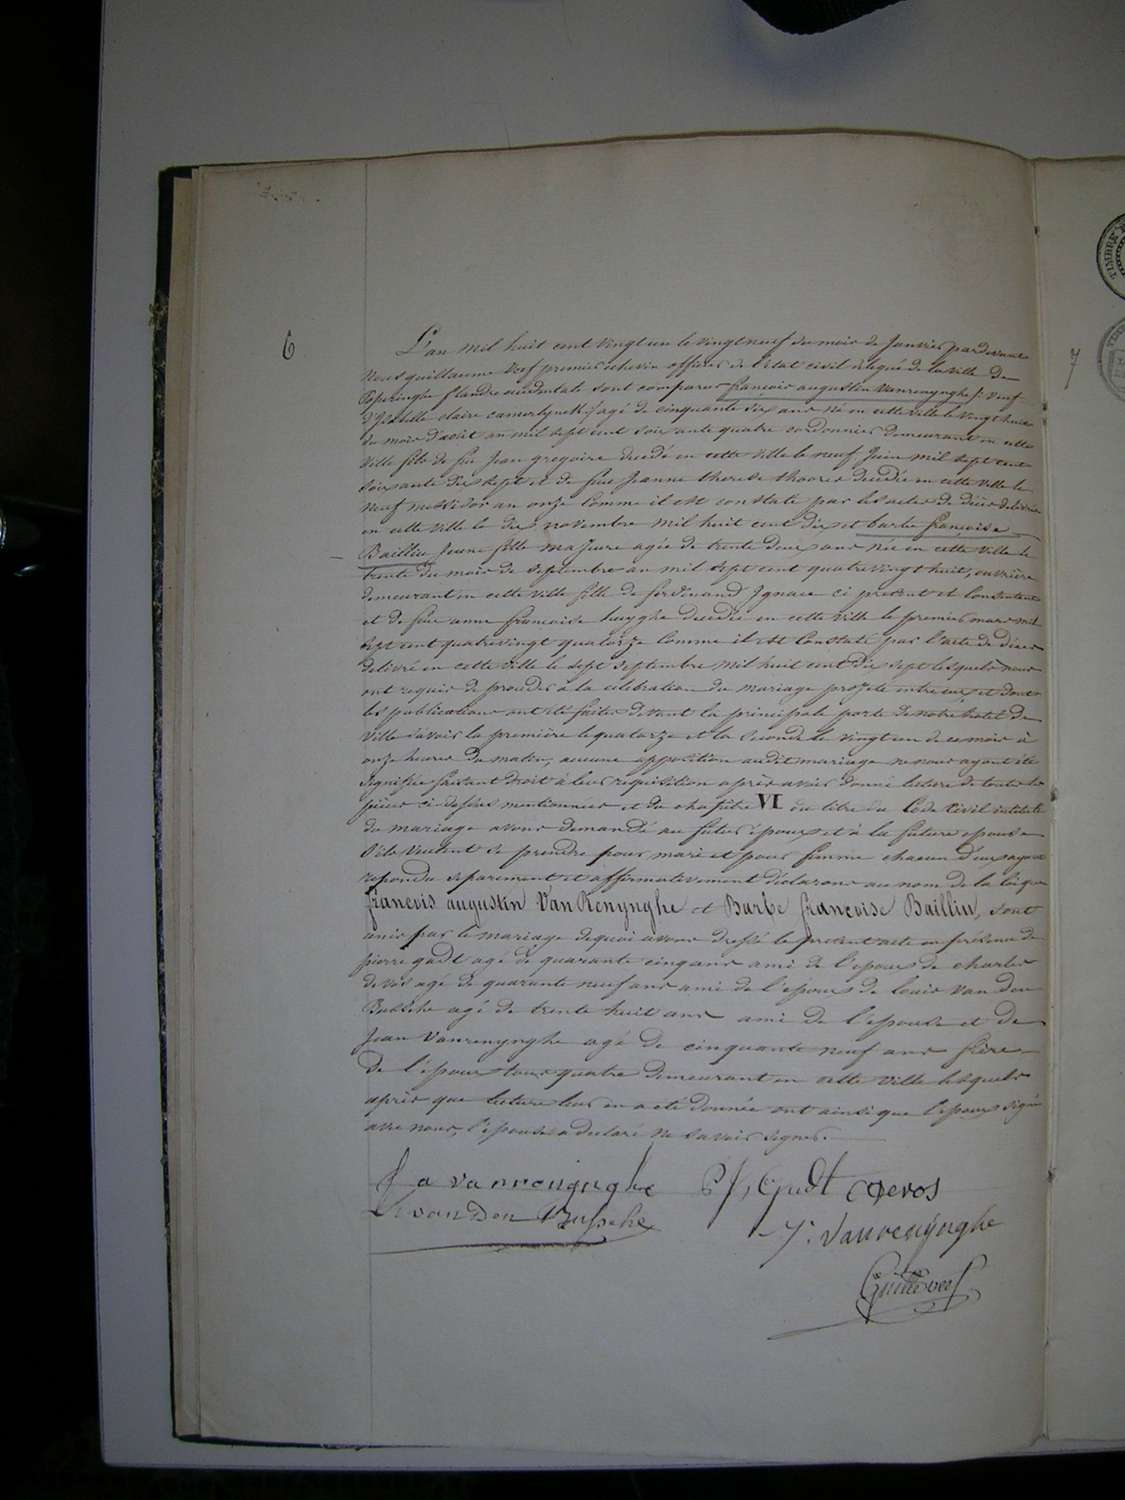 6
L'an mil huit cent vingt un le vingt neuf du mois de Janvier pardevant
Nous guillaume Vosf premier echevin officier de l'etat civil delegué de la ville de
Poperinghe flandre occidentale sont comparus françois augustin Vanrenynghe veuf
D'Isabelle claire camerlynck agé de cinquante six ans né en cette ville le vingt huit
du mois d'août an mil sept cent soixante quatre cordonnier demeurant en cette
ville fils de feu Jean gregoire decedé en cette ville le neuf Juin mil sept cent
soixante dix sept et de feue Jeanne therese decedée en cette ville le
neuf messidor an onze comme il est constaté par les actes de décès delivrés
en cette ville le dix novembre mil huit cent dix et barbe françoise
Bailliu Jeune fille majeure agée de trente deux ans née en cette ville le
trente du mois de septembre an mil sept cent quatre vingt huit, ouvrière
demeurant en cette ville fille de ferdinand Ignace ci present et consentant
et de feue anne françoise huyghe decedée en cette ville le premier mars mil
sept cent quatre vingt quatorze comme il est constaté par l'acte de décès
delivré en cette ville le sept septembre mil huit cent dix sept lesquels nous
ont requis de proceder à la celebration du mariage projeté entre eux et dont
les publications ont été faites devant la principale porte de notre hotel de
ville savoir la première le quatorze et la seconde le vingt un de ce mois à
onze heures du matin, aucune opposition audit mariage ne nous ayant été
signifiée faisant droit à leur requisition après avoir donné lecture de toutes les
pièces ci-dessus mentionnées et du chapitre VI du titre du Code Civil intitulé
du mariage avons demandé au futur époux et à la future epouse
s'ils veulent se prendre pour mari et pour femme chacun d'eux ayant
repondu separement et affirmativement déclarons au nom de la loi que
françois augustin Van Renynghe et Barbe françoise Bailliu, sont
unis par le mariage de quoi avons dressé le present acte en présence de
pierre gadt agé de quarante cinq ans ami de l'epoux de charles
de vos agé de quarante neuf ans ami de l'epoux de louis Van den
Bussche agé de trente huit ans ami de l'epouse et de
Jean Vanrenynghe agé de cinquante neuf ans frère
de l'époux tous quatre demeurant en cette ville lesquels
après que lecture leur en a été donnée ont ainsi que l'epoux signé
avec nous, l'epouse a declaré ne savoir signer.
f a vanrenynghe
Devos
L vanden Bussche
J. Vanrenynghe
7
TIMBRE